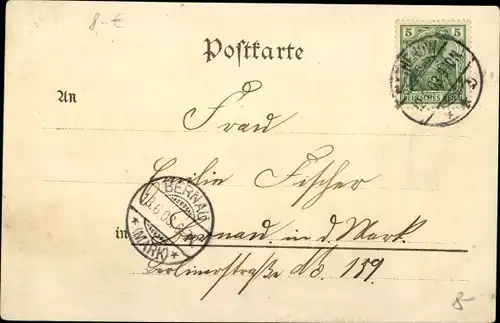 8.-€
5 5
DEUTSCHES REICH
Postkarte
An
Frau
Emilie Fischer
BERNAU
(MARK)
in Bernau in d. Mark
Berlinerstraße No. 159.
8-